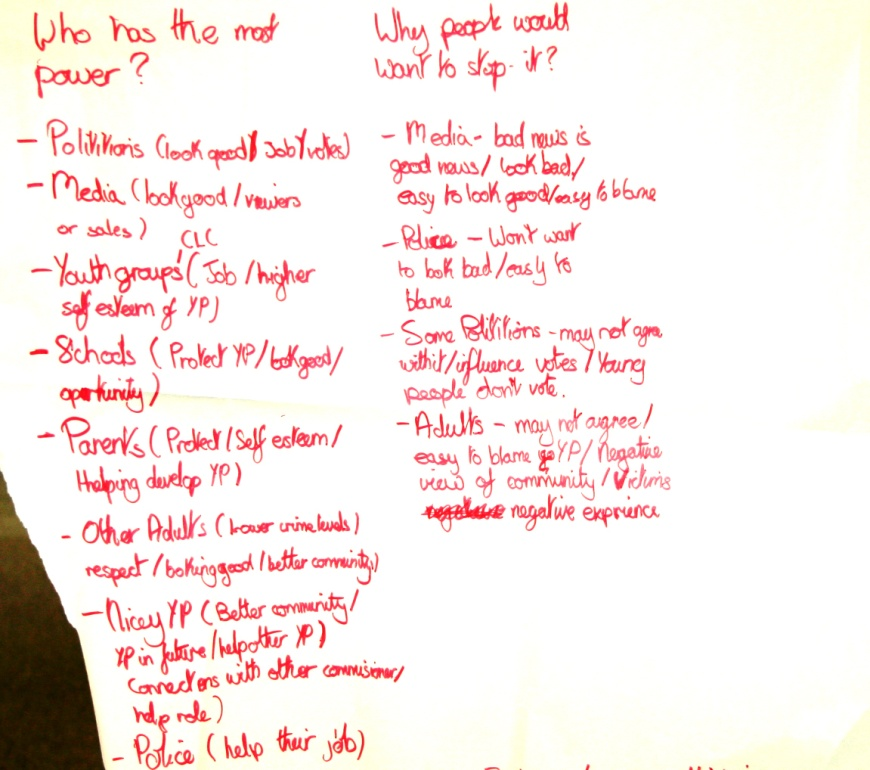 Who has the most
power?
- Polititions (look good/ Job/votes)
- Media (look good / viewers
or sales)
CLC
- Youth groups (Job / higher
self esteem of YP)
- Schools (Protect YP/look good/
oportunity)
- Parents (Protect / Self esteem /
Helping develop YP)
- Other Adults (Lower crime levels)
respect / looking good / better community)
- Nicey YP (Better community /
YP in future / help other YP)
Connections with other commisioner/
help role)
- Police (help their job)
Why people would
want to stop it?
- Media - bad news is
good news / look bad /
easy to look good/easy to blame
- Police - Won't want
to look bad / easy to
blame
- Some Polititions - may not agree
with it / influence votes / Young
people don't vote.
- Adults - may not agree /
easy to blame YP / Negative
view of community / Victims
negative exprience